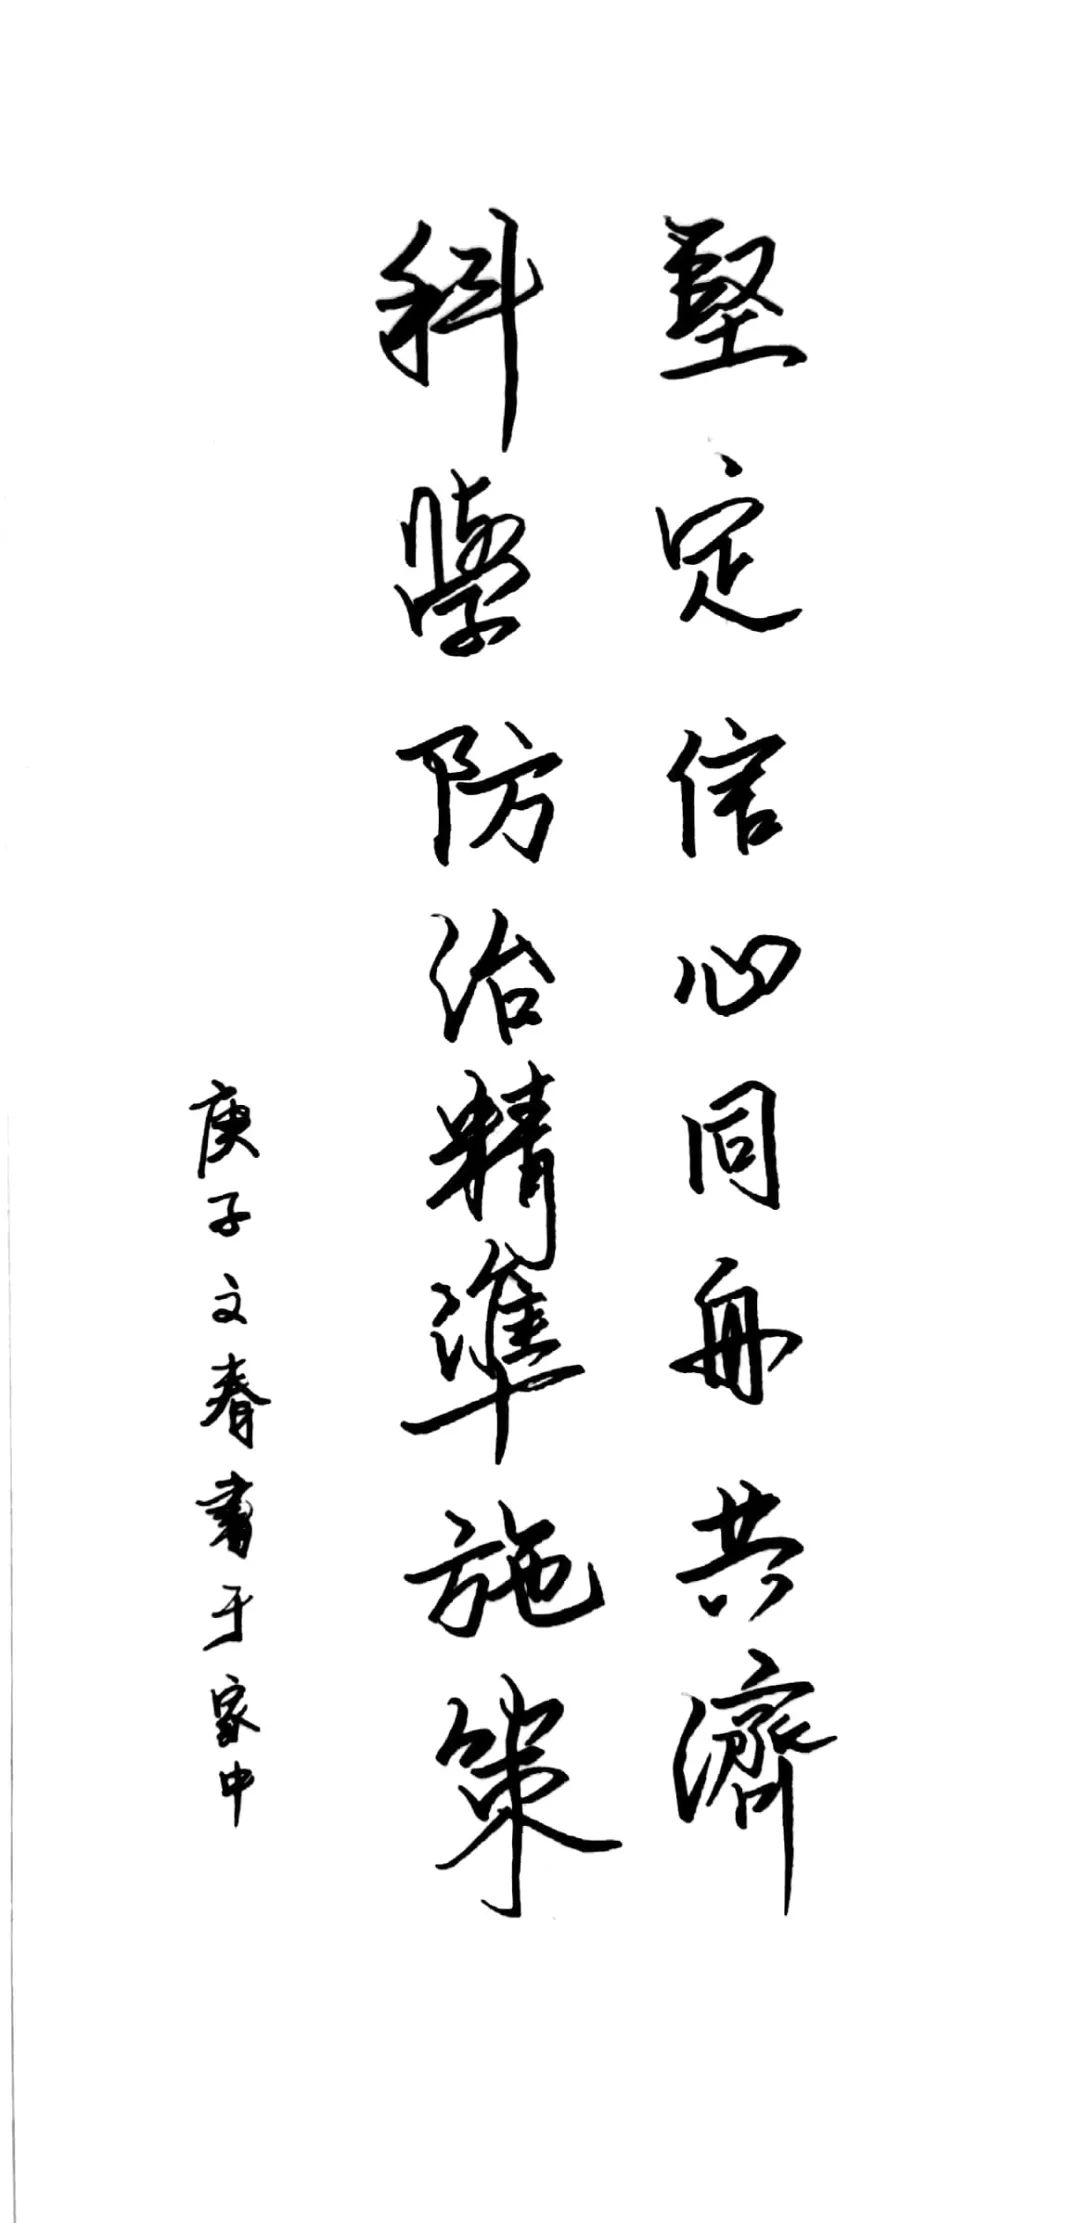 堅定信心同舟共濟
科學防治精準施策
庚子文春書于家中